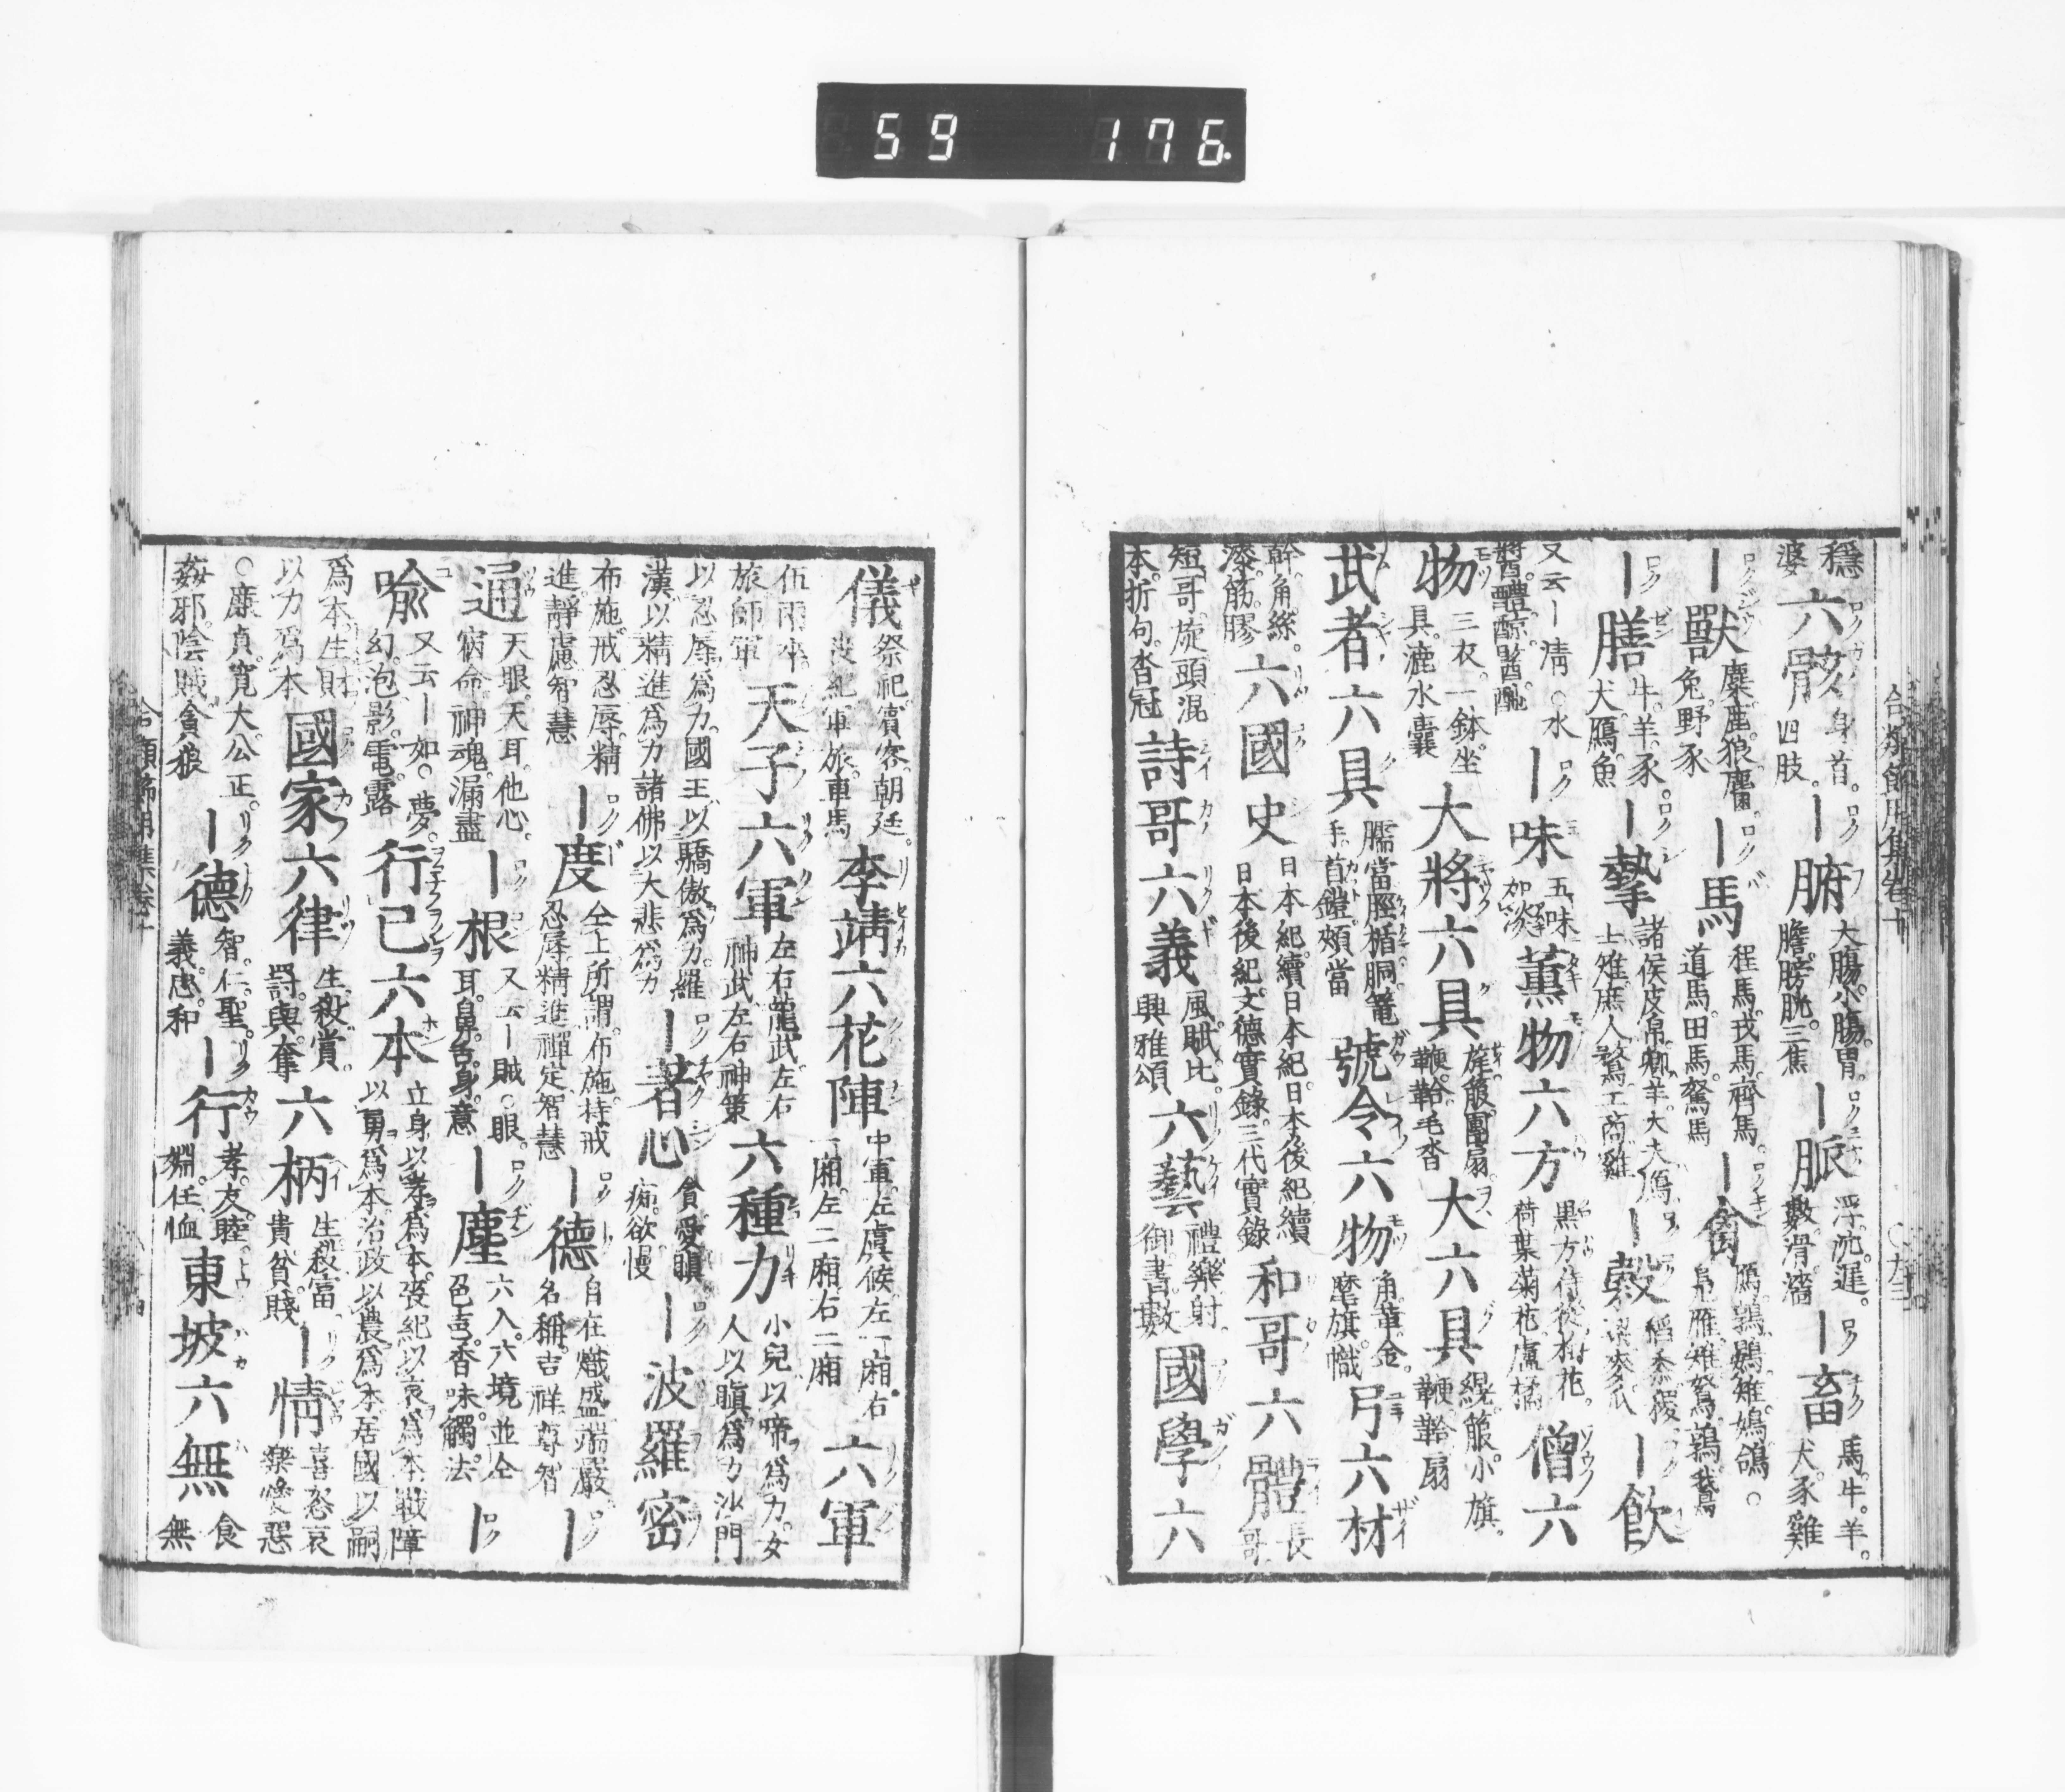 59 176
合類節用集卷十
穩婆 六骸 身首。四肢。 ー腑 大腸。小腸。胃。膽。膀胱。三焦 ー脈 浮。沈。遲。數。滑。濇 ー畜 馬。牛。羊。犬。豕。雞
ー獸 麋。鹿。狼。麕。兔。野豕 ー馬 種馬。戎馬。齊馬。道馬。田馬。駑馬 ー禽
ー膳 牛。羊。豕。犬。鴈。魚 ー摯 諸侯皮帛。卿羊。大夫鴈。士雉。庶人鶩。工商雞 ー穀 ー飮
又云ー清。水漿。醴。醇。醫。酏 ー味 五味如淡 薰物六方 黒方。侍從。梅花。荷葉。菊花。盧橘 僧六
物 三衣。一鉢。坐具。漉水囊 大將六具 鞭。鞈。毛沓 大六具 鞭。鞈。扇
武者六具 臑當。脛楯。胴。篭手。首鎧。頰當 號令六物 角。革。金。麾。旗。幟 弓六材
幹。角。絲。漆。筋。膠 六國史 日本紀。續日本紀。日本後紀。續日本後紀。文德實錄。三代實錄 和哥六體 長哥
短哥。旋頭。混本。折句。沓冠 詩哥六義 風。賦。比。興。雅。頌 六藝 禮。樂。射。御。書。數 國學六
儀 祭祀。賓客。朝廷。喪紀。軍旅。車馬 李靖六花陣 中軍。左虞候。左一廂。右一廂。左二廂。右二廂 六軍
伍。兩。卒。旅。師。軍 天子六軍 左右龍武。左右神武。左右神策 六種力 小兒以啼爲力。女人以瞋爲力。沙門
以忍辱爲力。國王以驕傲爲力。羅漢以精進爲力。諸佛以大悲爲力 ー著心 貪。愛。瞋。痴。欲。慢 ー波羅密
布施。戒。忍辱。精進。靜慮。智慧 ー度 仝上所謂。布施。持戒。忍辱。精進。禪定。智慧 ー德 自在。熾盛。端嚴。名稱。吉祥。尊智 ー
通 天眼。天耳。他心。宿命。神魂。漏盡 ー根 又云ー賊。眼。耳。鼻。舌。身。意 ー塵 六入。六境並仝。色。声。香。味。觸。法 ー
喩 又云ー如。夢。幻。泡。影。電。露 行己六本 立身以孝爲本。喪紀以哀爲本。戰陣以勇爲本。治政以農爲本。居國以嗣
爲本。生財以力爲本 國家六律 生。殺。賞。罸。與。奪 六柄 生。殺。富。貴。貧。賤 ー情 喜。怒。哀。樂。愛。惡
○廉貞。寛大。公正。姦邪。陰賊。貪狼 ー德 智。仁。聖。義。忠。和 ー行 孝。友。睦。婣。任。恤 東坡六無 食無